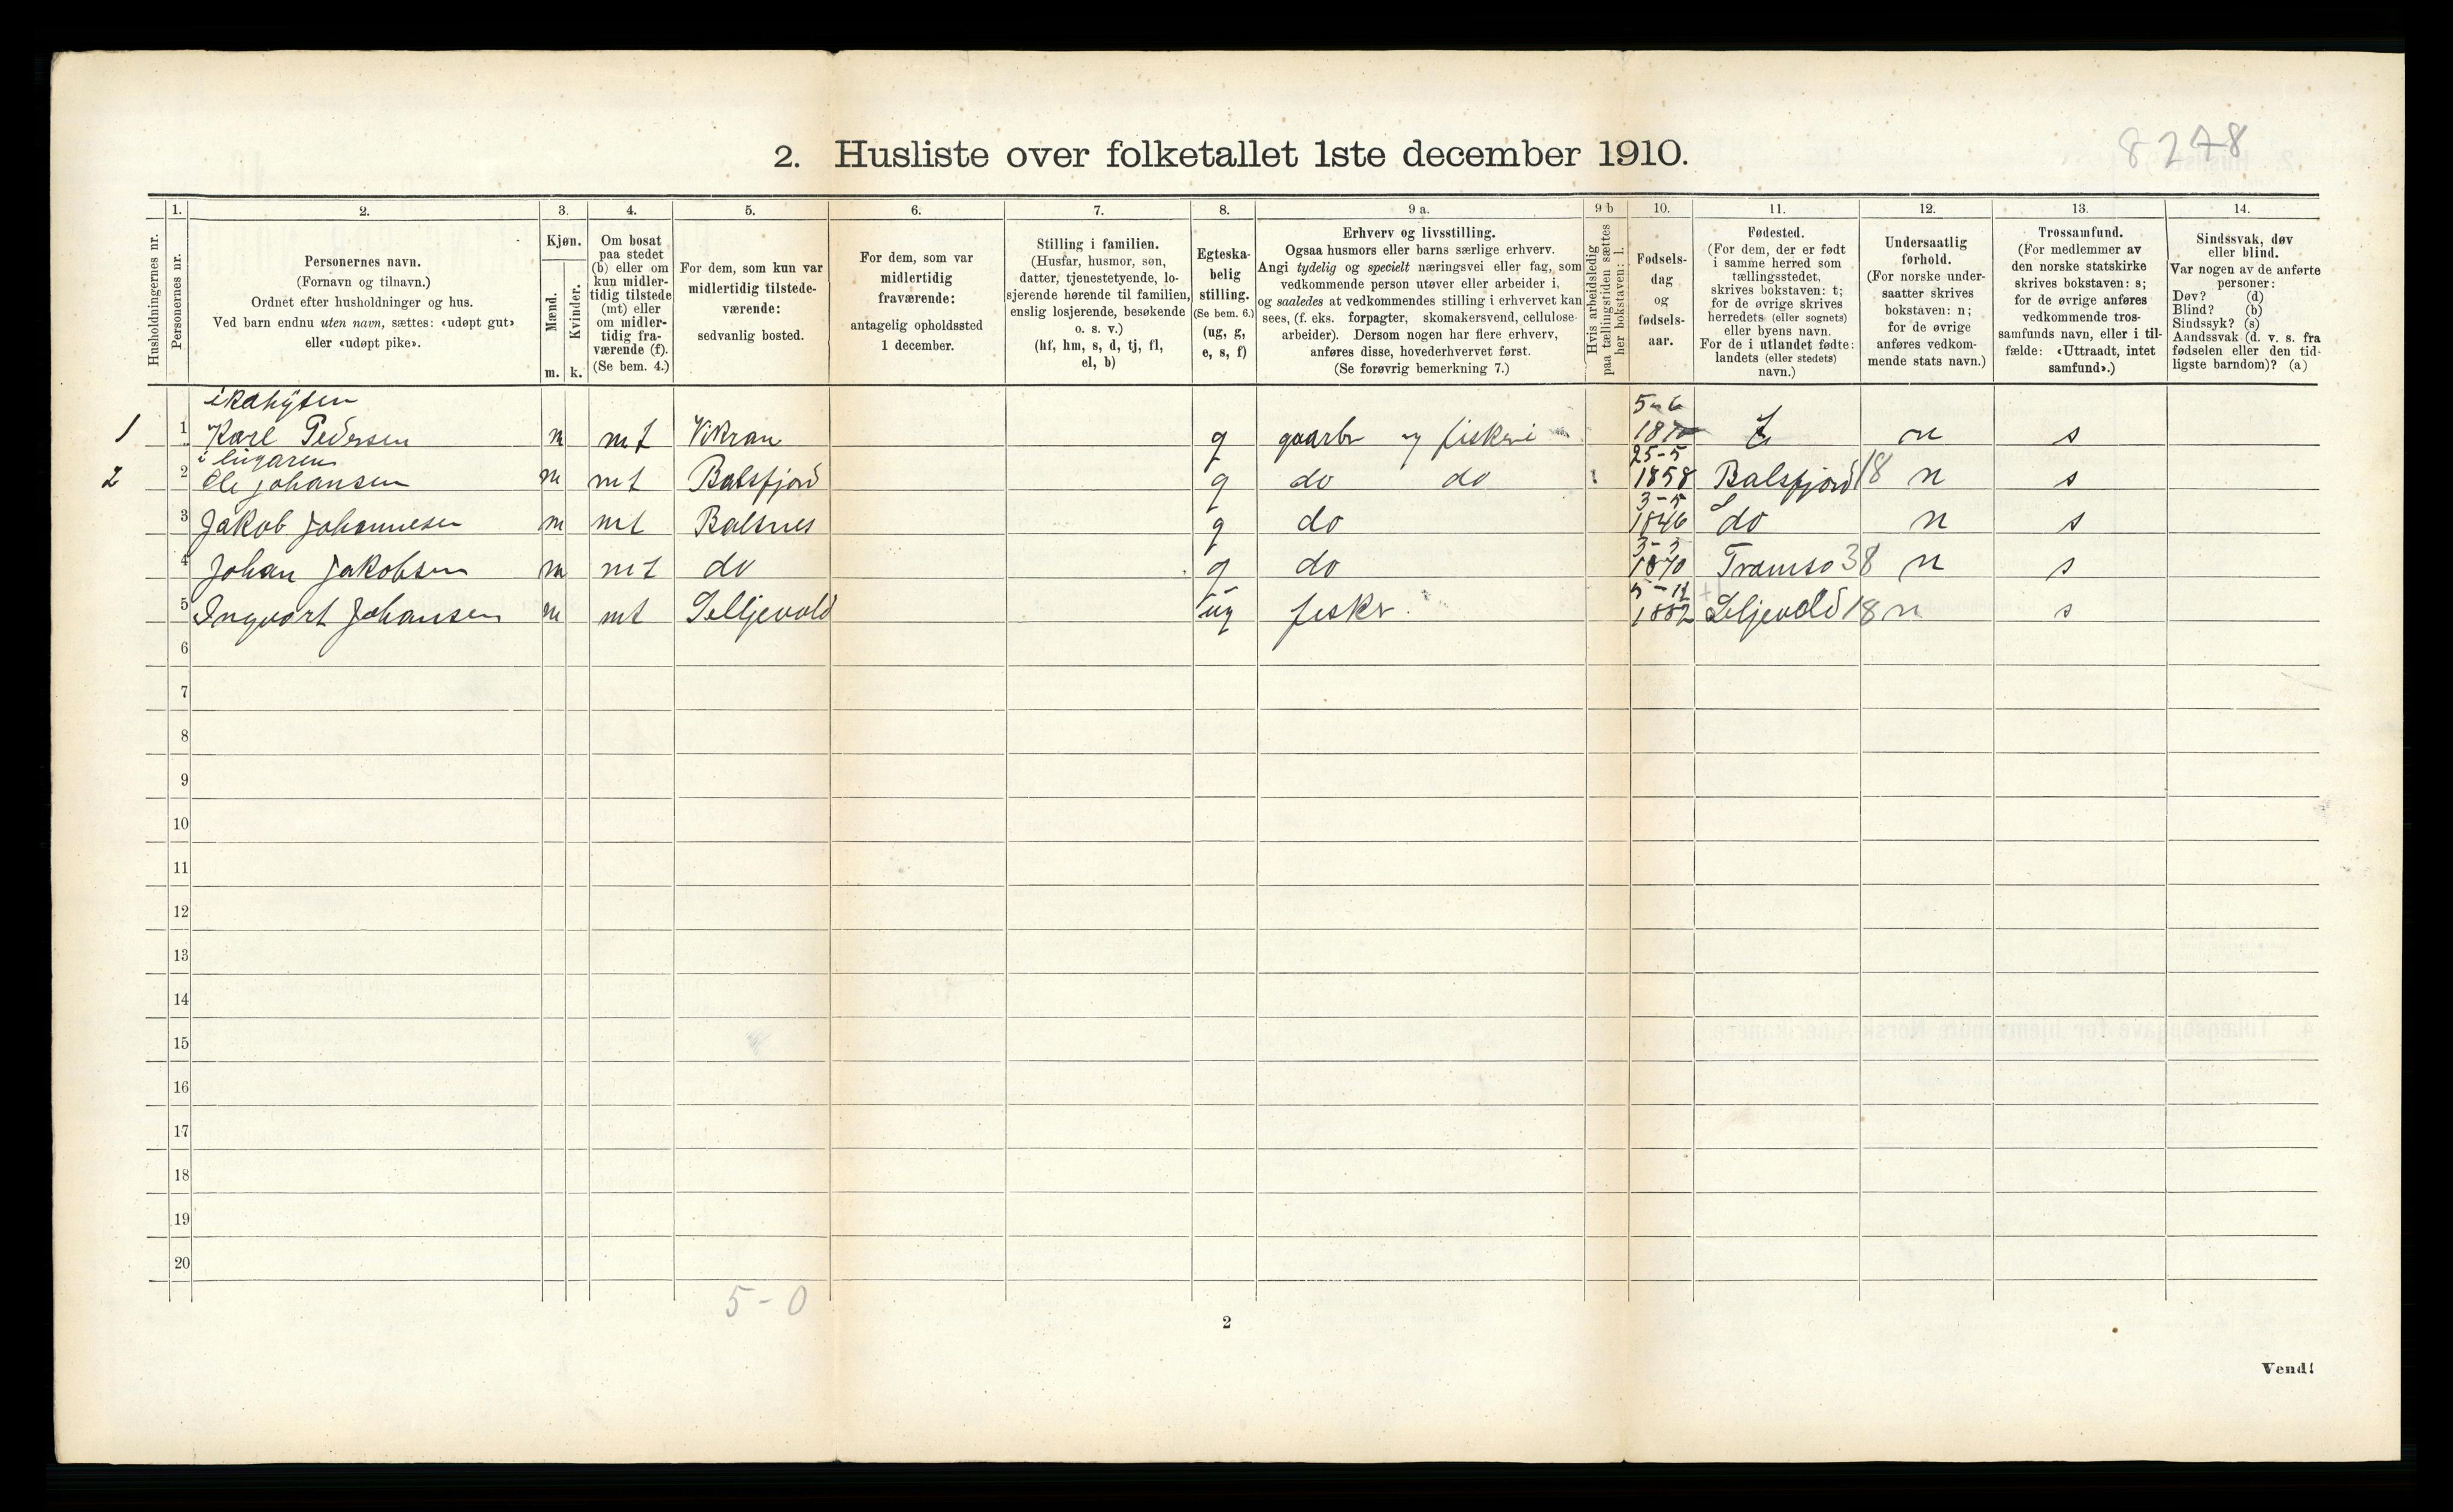 8278
2. Husliste over folketallet 1ste december 1910.
Husholdningernes nr.
1. Personernes nr.
2. Personernes navn.
(Fornavn og tilnavn.)
Ordnet efter husholdninger og hus.
Ved barn endnu uten navn, sættes: «udøpt gut»
eller «udøpt pike».
3. Kjøn.
Mænd. Kvinder.
m. k.
4. Om bosat
paa stedet
(b) eller om
kun midler-
tidig tilstede
(mt) eller
om midler-
tidig fra-
værende (f).
(Se bem. 4.)
5. For dem, som kun var
midlertidig tilstede-
værende:
sedvanlig bosted.
6. For dem, som var
midlertidig
fraværende:
antagelig opholdssted
1 december.
7. Stilling i familien.
(Husfar, husmor, søn,
datter, tjenestetyende, lo-
sjerende hørende til familien,
enslig losjerende, besøkende
o. s. v.)
(hf, hm, s, d, tj, fl,
el, b)
8. Egteska-
belig
stilling.
(Se bem. 6.)
(ug, g,
e, s, f)
9 a. Erhverv og livsstilling.
Ogsaa husmors eller barns særlige erhverv.
Angi tydelig og specielt næringsvei eller fag, som
vedkommende person utøver eller arbeider i,
og saaledes at vedkommendes stilling i erhvervet kan
sees, (f. eks. forpagter, skomakersvend, cellulose-
arbeider). Dersom nogen har flere erhverv,
anføres disse, hovederhvervet først.
(Se forøvrig bemerkning 7.)
9 b Hvis arbeidsledig
paa tællingstiden sættes
her bokstaven: l.
10. Fødsels-
dag
og
fødsels-
aar.
11. Fødested.
(For dem, der er født
i samme herred som
tællingsstedet,
skrives bokstaven: t;
for de øvrige skrives
herredets (eller sognets)
eller byens navn.
For de i utlandet fødte:
landets (eller stedets)
navn.)
12. Undersaatlig
forhold.
(For norske under-
saatter skrives
bokstaven: n;
for de øvrige
anføres vedkom-
mende stats navn.)
13. Trossamfund.
(For medlemmer av
den norske statskirke
skrives bokstaven: s;
for de øvrige anføres
vedkommende tros-
samfunds navn, eller i til-
fælde: «Uttraadt, intet
samfund».)
14. Sindssvak, døv
eller blind.
Var nogen av de anførte
personer:
Døv? (d)
Blind? (b)
Sindssyk? (s)
Aandssvak (d. v. s. fra
fødselen eller den tid-
ligste barndom)? (a)
5-6
1 1 Karl Pedersen m mt Vikran g gaarbr og fiskeri t n s
i lugaren 25-5
2 2 Ole Johansen m mt Balsfjord g do do 1858 Balsfjord 18 n s
3 Jakob Johannesen m mt Balsnes g do 1846 do n s
3-3
4 Johan Jakobsen m mt do g do 1870 Tromsø 38 n s
5-12
5 Ingvart Johansen m mt Selljevold ug fisker 1882 Seljevold 18 n s
6
7
8
9
10
11
12
13
14
15
16
17
18
19
20
5-0
2
Vend!